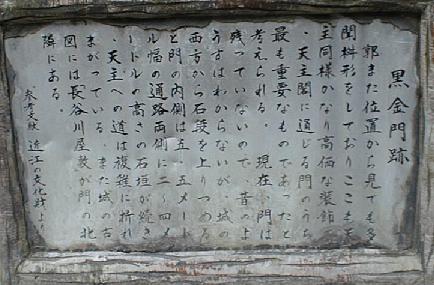 黒金門跡
郭また位置から見ても多
聞枡形をしておりここも天
主同様かなり高価な装飾
・天主閣に通じる門のうち
最も重要なものであったと
考えられる。現在、門は
残っていないので、昔のよ
うすはわからないが、城の
西方から石段を上りつめる
と門の内側は五・五メート
ル幅の通路両側に二〜四メ
ートルの高さの石垣が続き
・天主への道は複雑に折れ
まがっている。また城の古
図には長谷川屋敷が門の北
隣にある。
参考文献 近江の文化財より